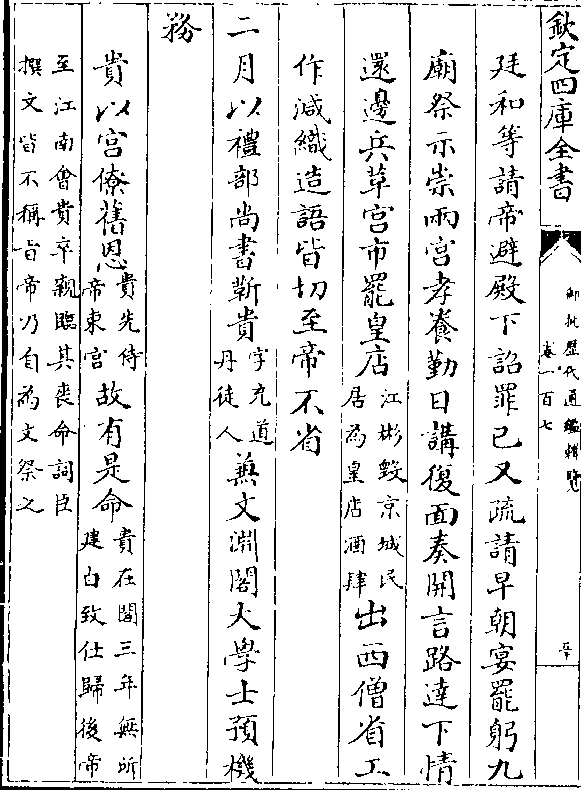 欽定四庫全書
御批歴代通鑑輯覽
卷一百七
廷和等請帝避殿下詔罪己又疏請早朝宴罷躬九
廟祭示崇兩宮孝養勤日講復面奏開言路達下情
還邊兵革宮市罷皇店江彬毀京城民居為皇店酒肆出西僧省工
作減織造語皆切至帝不省
二月以禮部尚書靳貴字充道丹徒人兼文淵閣大學士預機
務
貴以宮僚舊恩貴先侍帝東宮故有是命貴在閣三年無所建白致仕歸後帝
至江南會貴卒親臨其喪命詞臣
撰文皆不稱旨帝乃自為文祭之